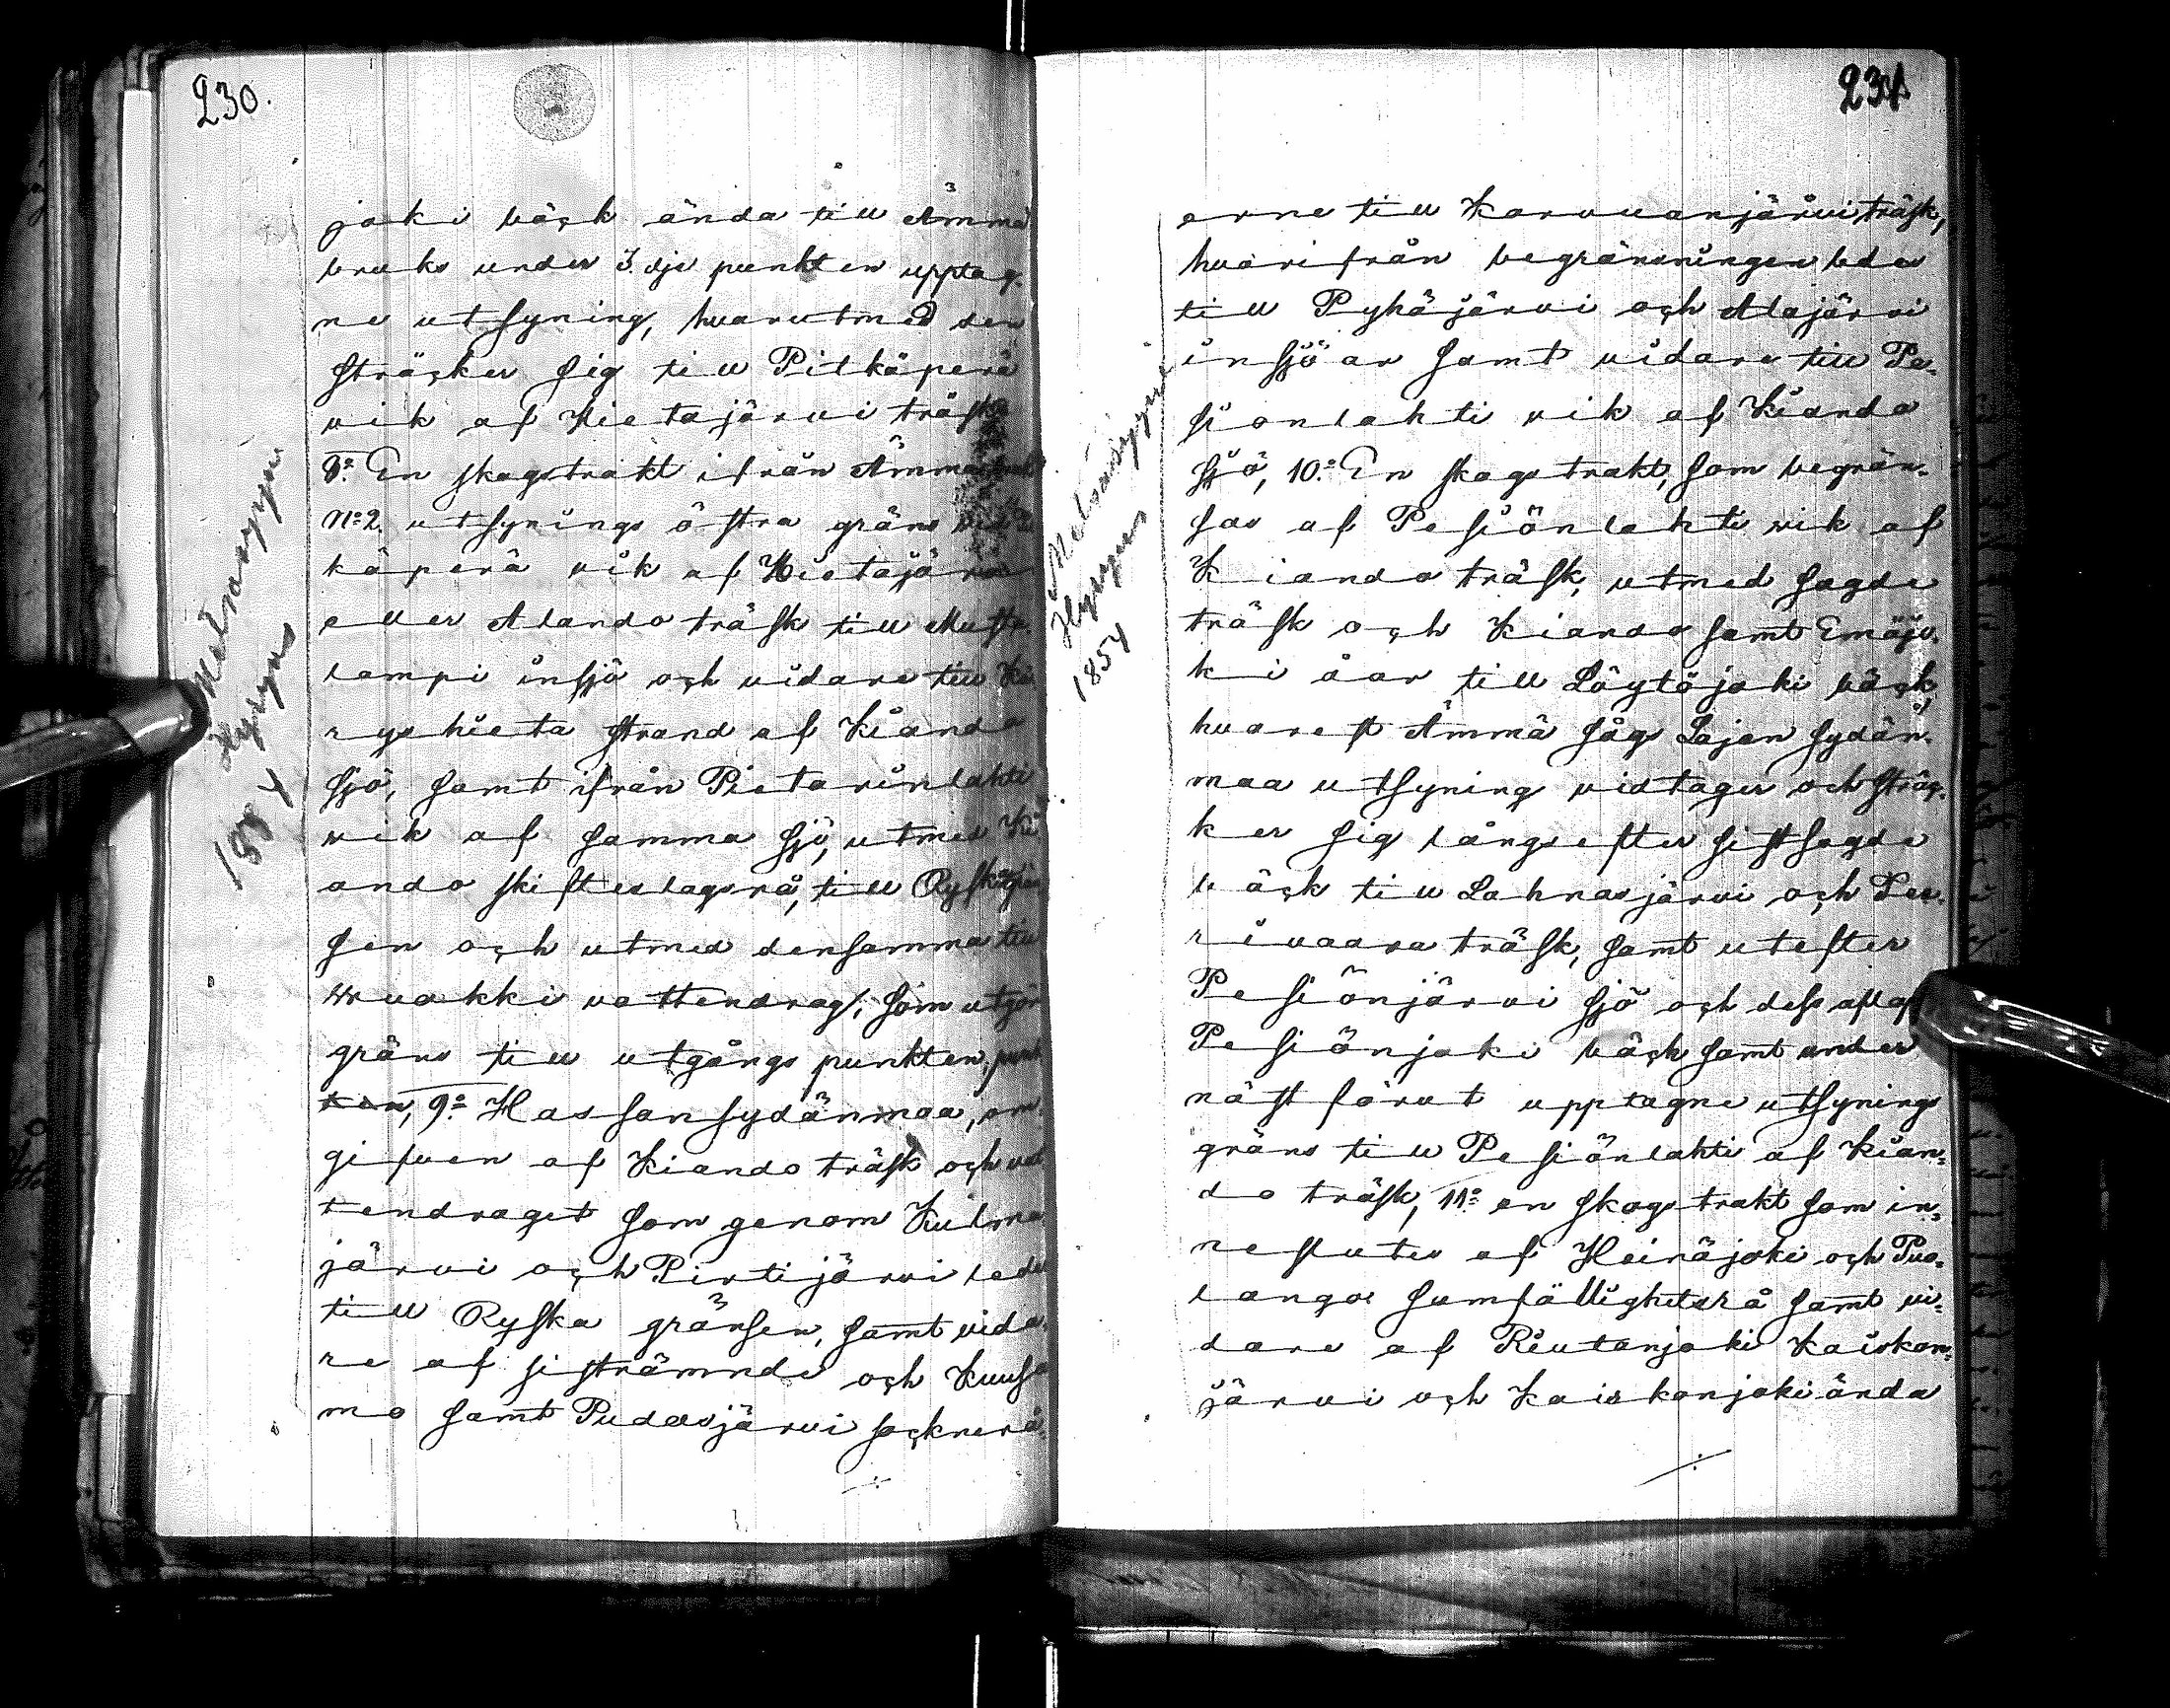 230.
joki bäck ända till Ämmä
bruks under 3.dje punkten upptag-
ne utsyning, hvarutmed den
sträcker sig till Pitkäperä
vik af Hietajärvi träsk
8:o En skogstrakt ifrån Ämmä
N:o 2. utsynings östra gräns vid
käperä vik af Hietajärvi
eller Alando träsk till Musta
lampi insjö och vidare till
ryshieta strand af Kiando
sjö, samt ifrån Pietarinlahti
vik af samma sjö, utmed Ki
ando skifteslagsrå, till Ryska grän
sen och utmed densamma till
Wuokki vattendrag, som utgör
gräns till utgångs punkten, punk
ten, 9:o Hossonsydänmaa, om
gifven af Kiando träsk och vat
tendraget som genom Kulma
järvi och Pirtijärvi leder
till Ryska gränsen, samt vida
re af sistnämnde och Kuusa
mo samt Pudasjärvi sockner
Metsänsyyni
Hyryns
1854
231
erne till Korvuanjärvi träsk,
hvarifrån begränsningen leder
till Pyhäjärvi och Alajärvi
insjöar samt vidare till Pe-
siönlahti vik af Kiando
sjö, 10:o En skogstrakt, som begrän-
sas af Pesiönlahti vik af
Kiando träsk, utmed sagde
träsk och Kiando samt Emäjo-
ki åar till Löytöjoki bäck,
hvarest Ämmä sågs Lajan sydän-
maa utsyning vidtager och sträc-
ker sig långsefter sistsagde
bäck till Lahnasjärvi och Per-
rivaara träsk, samt utefter
Pesiönjärvi sjö och dess aflop
Pesiönjoki bäck samt under
näst förut upptagne utsynings
gräns till Pesiönlahti af Kian-
do träsk, 11:o en skogstrakt som in-
neslutes af Heinäjoki och Puo-
langos samfällighetsrå samt vi-
dare af Riutanjoki Kaiskon-
järvi och Kaiskonjoki ända
Metsänsyyni
Hyryns
1854